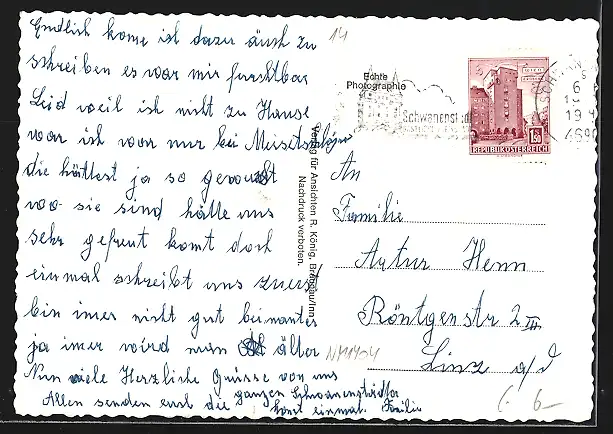 Endlich kome ich dazu auch zu
schreiben es war mir furchtbar
Leid weil ich nicht zu Hause
war ich war nur bei
die hättest ja so gewust
wo sie sind hätte uns
sehr gefreut komt doch
einmal schreibt uns zuerst
bin imer nicht gut beinander
ja imer wird man älter
Nun viele Herzliche Grüsse von uns
Allen senden euch die ganzen Schwanenstädter
komt einmal. Familie
14
Echte
Photographie
Schwanenstadt
6
19
4690
REPUBLIK ÖSTERREICH
1.50
Verlag für Ansichten R. König, Braunau/Inn
Nachdruck verboten.
An
Familie
Artur Henn
Röntgenstr 2 III
Linz a/d
NM1104
6-